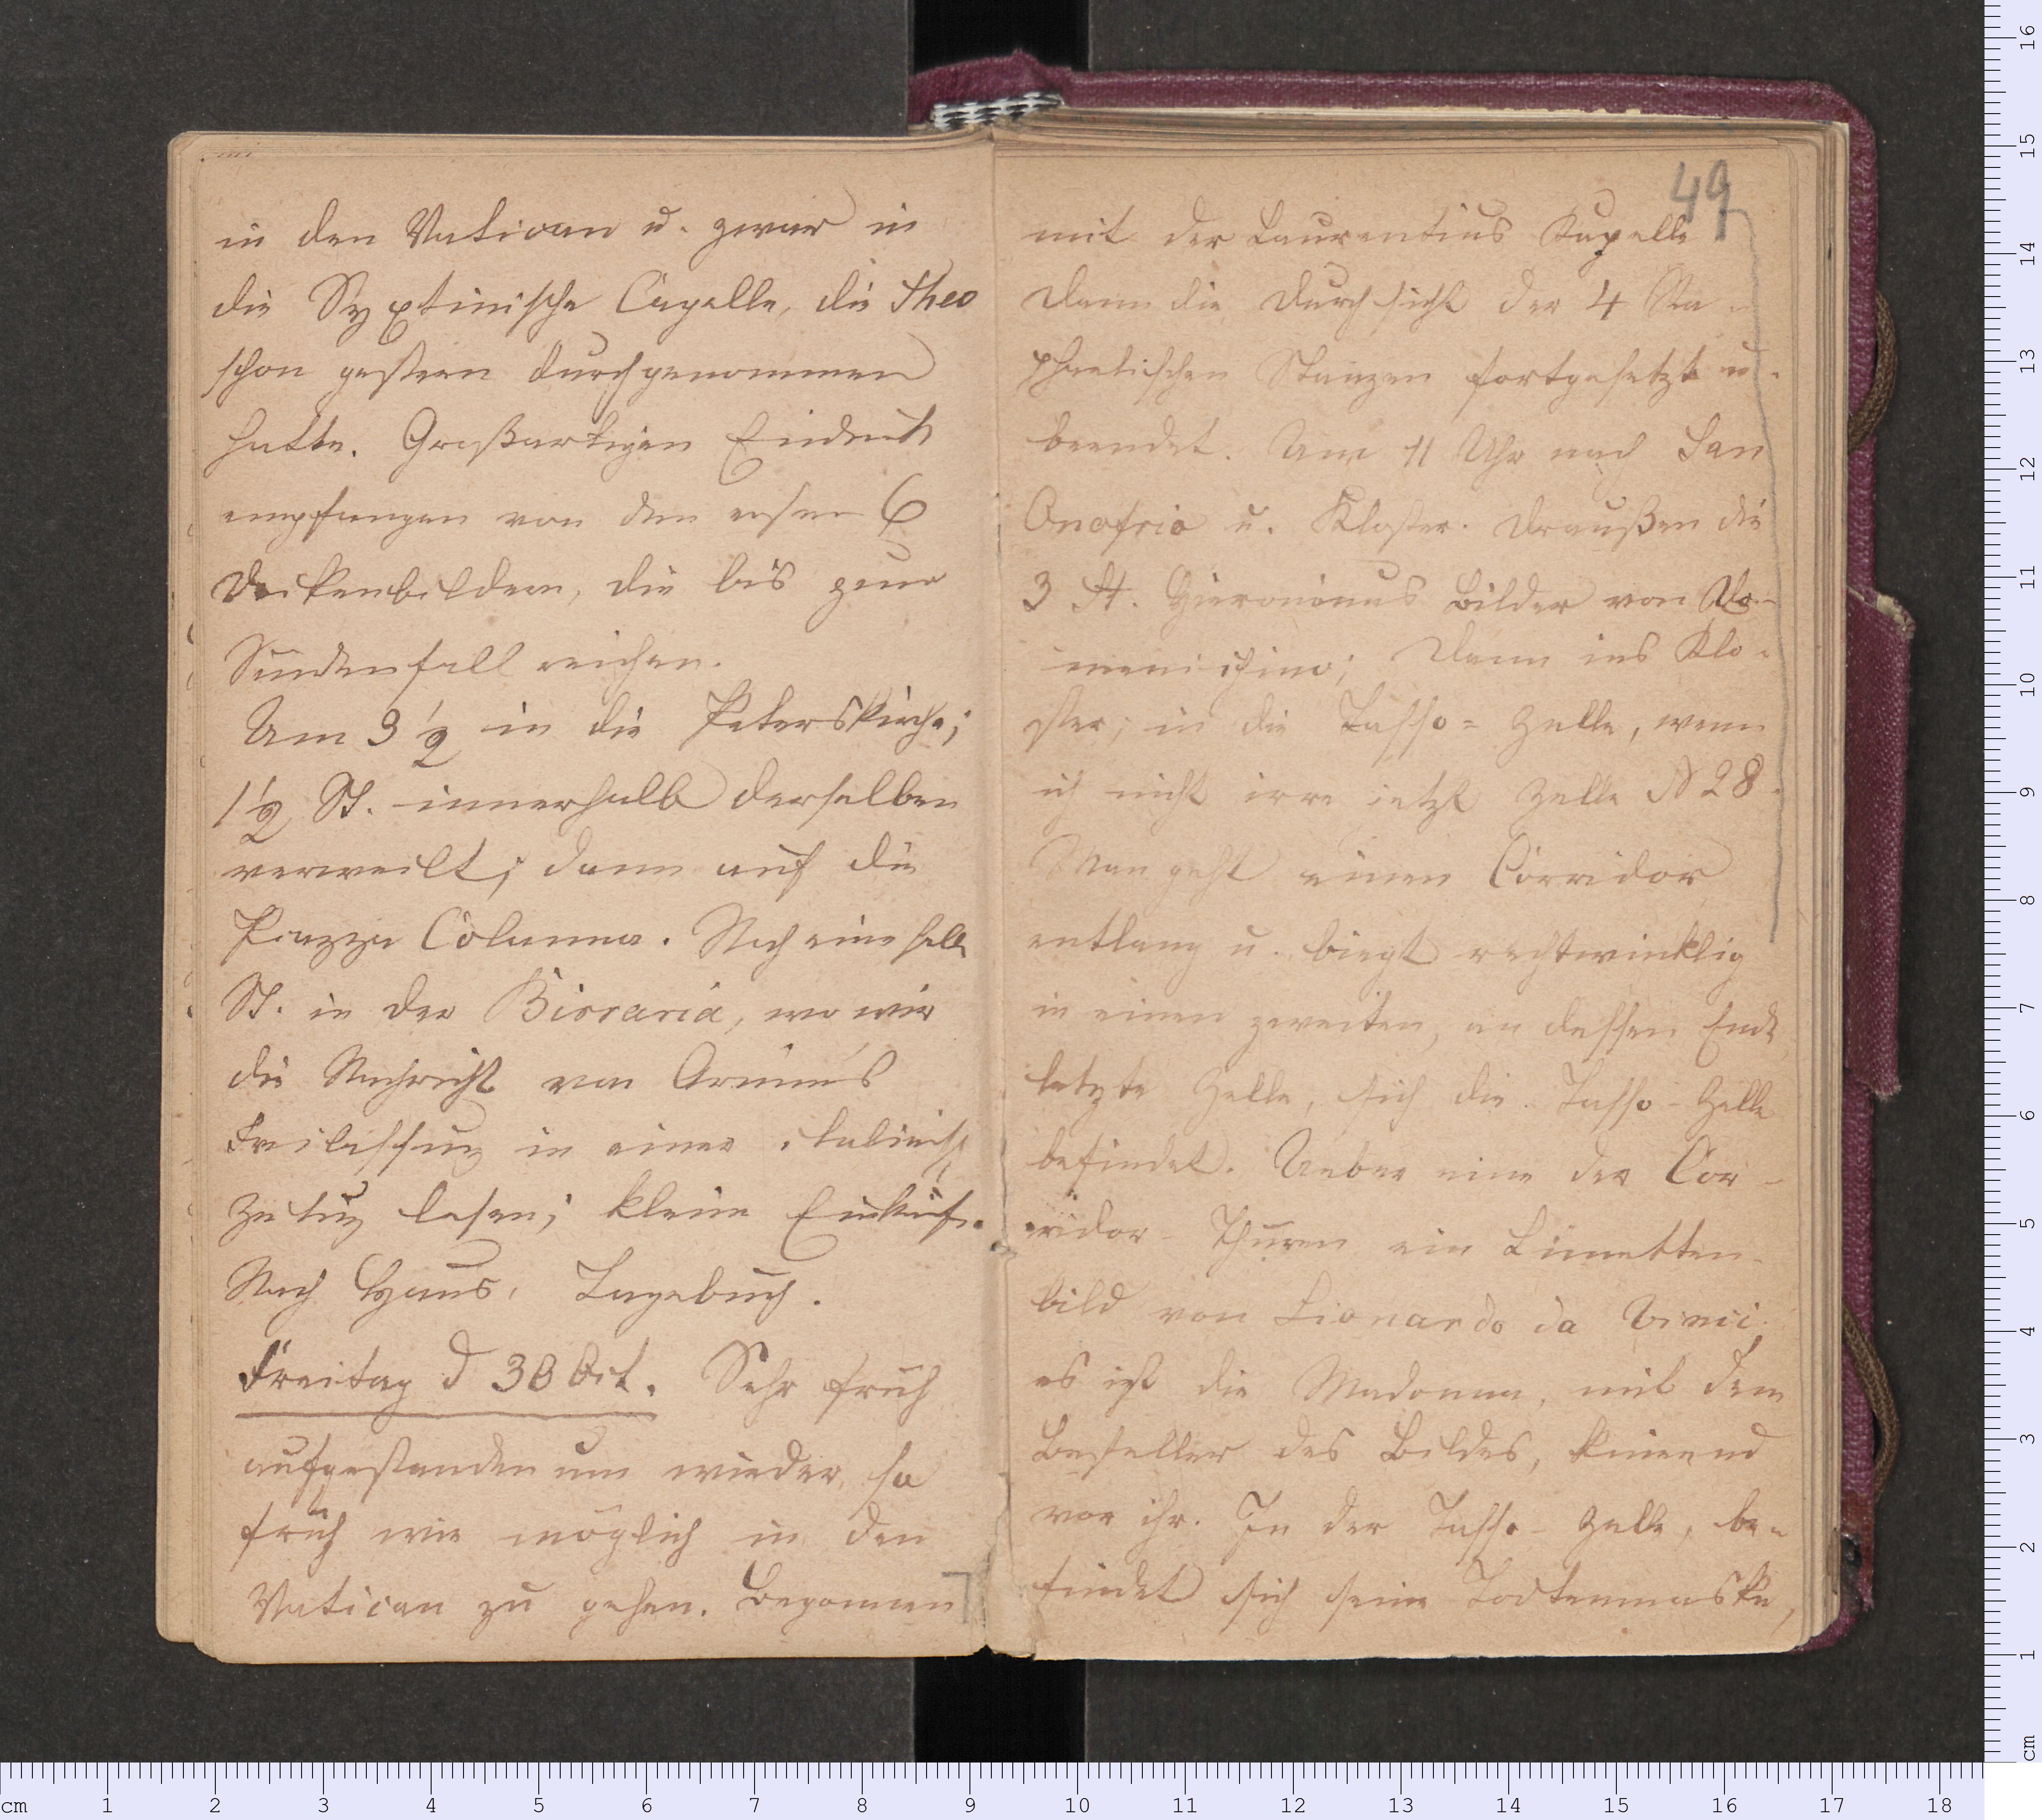 in den Vatican u. zwar in
die Syxtinische Capelle, die Theo
schon gestern durchgenommen
hatte. Großartigen Eindruck
empfangen von den ersten 6
Deckenbildern, die bis zum
Sündenfall reichen.
Um 3 1/2 in die Peterskirche;
1 1/2 St. innerhalb derselben
verweilt; dann auf die
Piazza Colonna. Noch eine halbe
St. in der Birraria, wo wir
die Nachricht von Arnims
Freilassung in einer italienisch
Zeitung lasen; kleine Einkäufe.
Nach Haus, Tagebuch.
Freitag d 30 Oct. Sehr früh
aufgestanden um wieder so
früh wie möglich in den
Vatican zu gehen. Begonnen
49
mit der Laurentius Kapelle
dann die Durchsicht der 4 Ra-
phaelischen Stanzen fortgesetzt u.
beendet. Um 11 Uhr nach San
Onofrio u. Kloster. Draußen die
3 St. Hieronimus Bilder von Do-
menichino; dann ins Klo-
ster; in die Tasso-Zelle, wenn
ich nicht irre jetzt Zelle N 28.
Man geht einen Corridor
entlang u. biegt rechtwinklig
in einen zweiten, an dessen Ende
letzte Zelle, sich die Tasso-Zelle
befindet. Ueber eine der Cor-
ridor-Thüren ein Lünetten-
bild von Lionardo da Vinci.
es ist die Madonna, mit dem
Besteller des Bildes, knieend
vor ihr. In der Tasso-Zelle, be-
findet sich seine Todtenmaske,